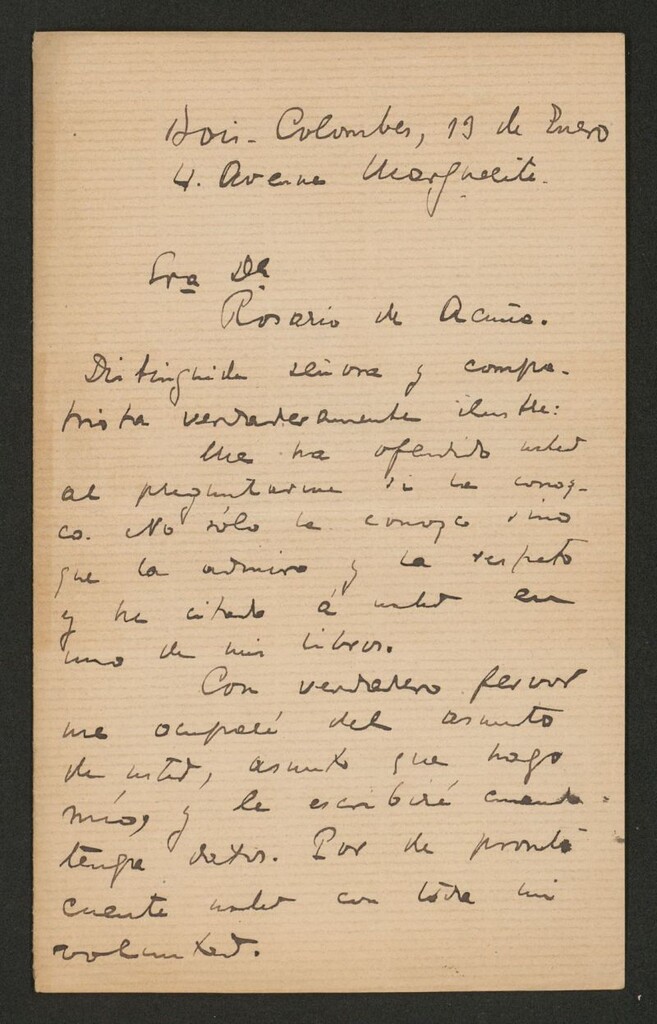 Bois-Colombes, 19 de Enero
4. Avenue Marguerite.
Sra Da
Rosario de Acuña.
Distinguida señora y compa-
triota verdaderamente ilustre:
Me ha ofendido usted
al preguntarme si la conoz-
co. No sólo la conozco sino
que la admiro y la respeto
y he citado á usted en
uno de mis libros.
Con verdadero fervor
me ocuparé del asunto
de usted, asunto que hago
mío, y le escribiré cuando
tenga datos. Por de pronto
cuente usted con toda mi
voluntad.